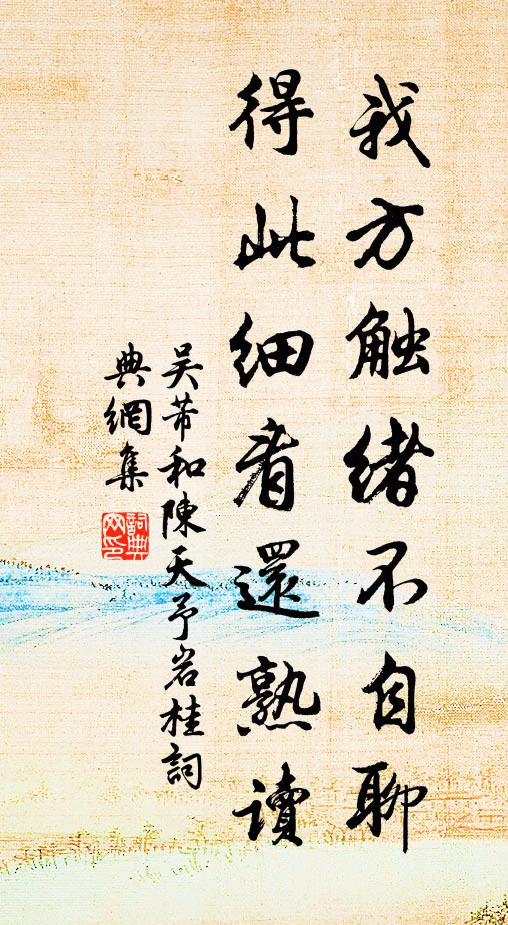 我方触绪不自聊
得此细看還熟讀
吴芾和陳天予岩桂詞
典網集
詞典
网印